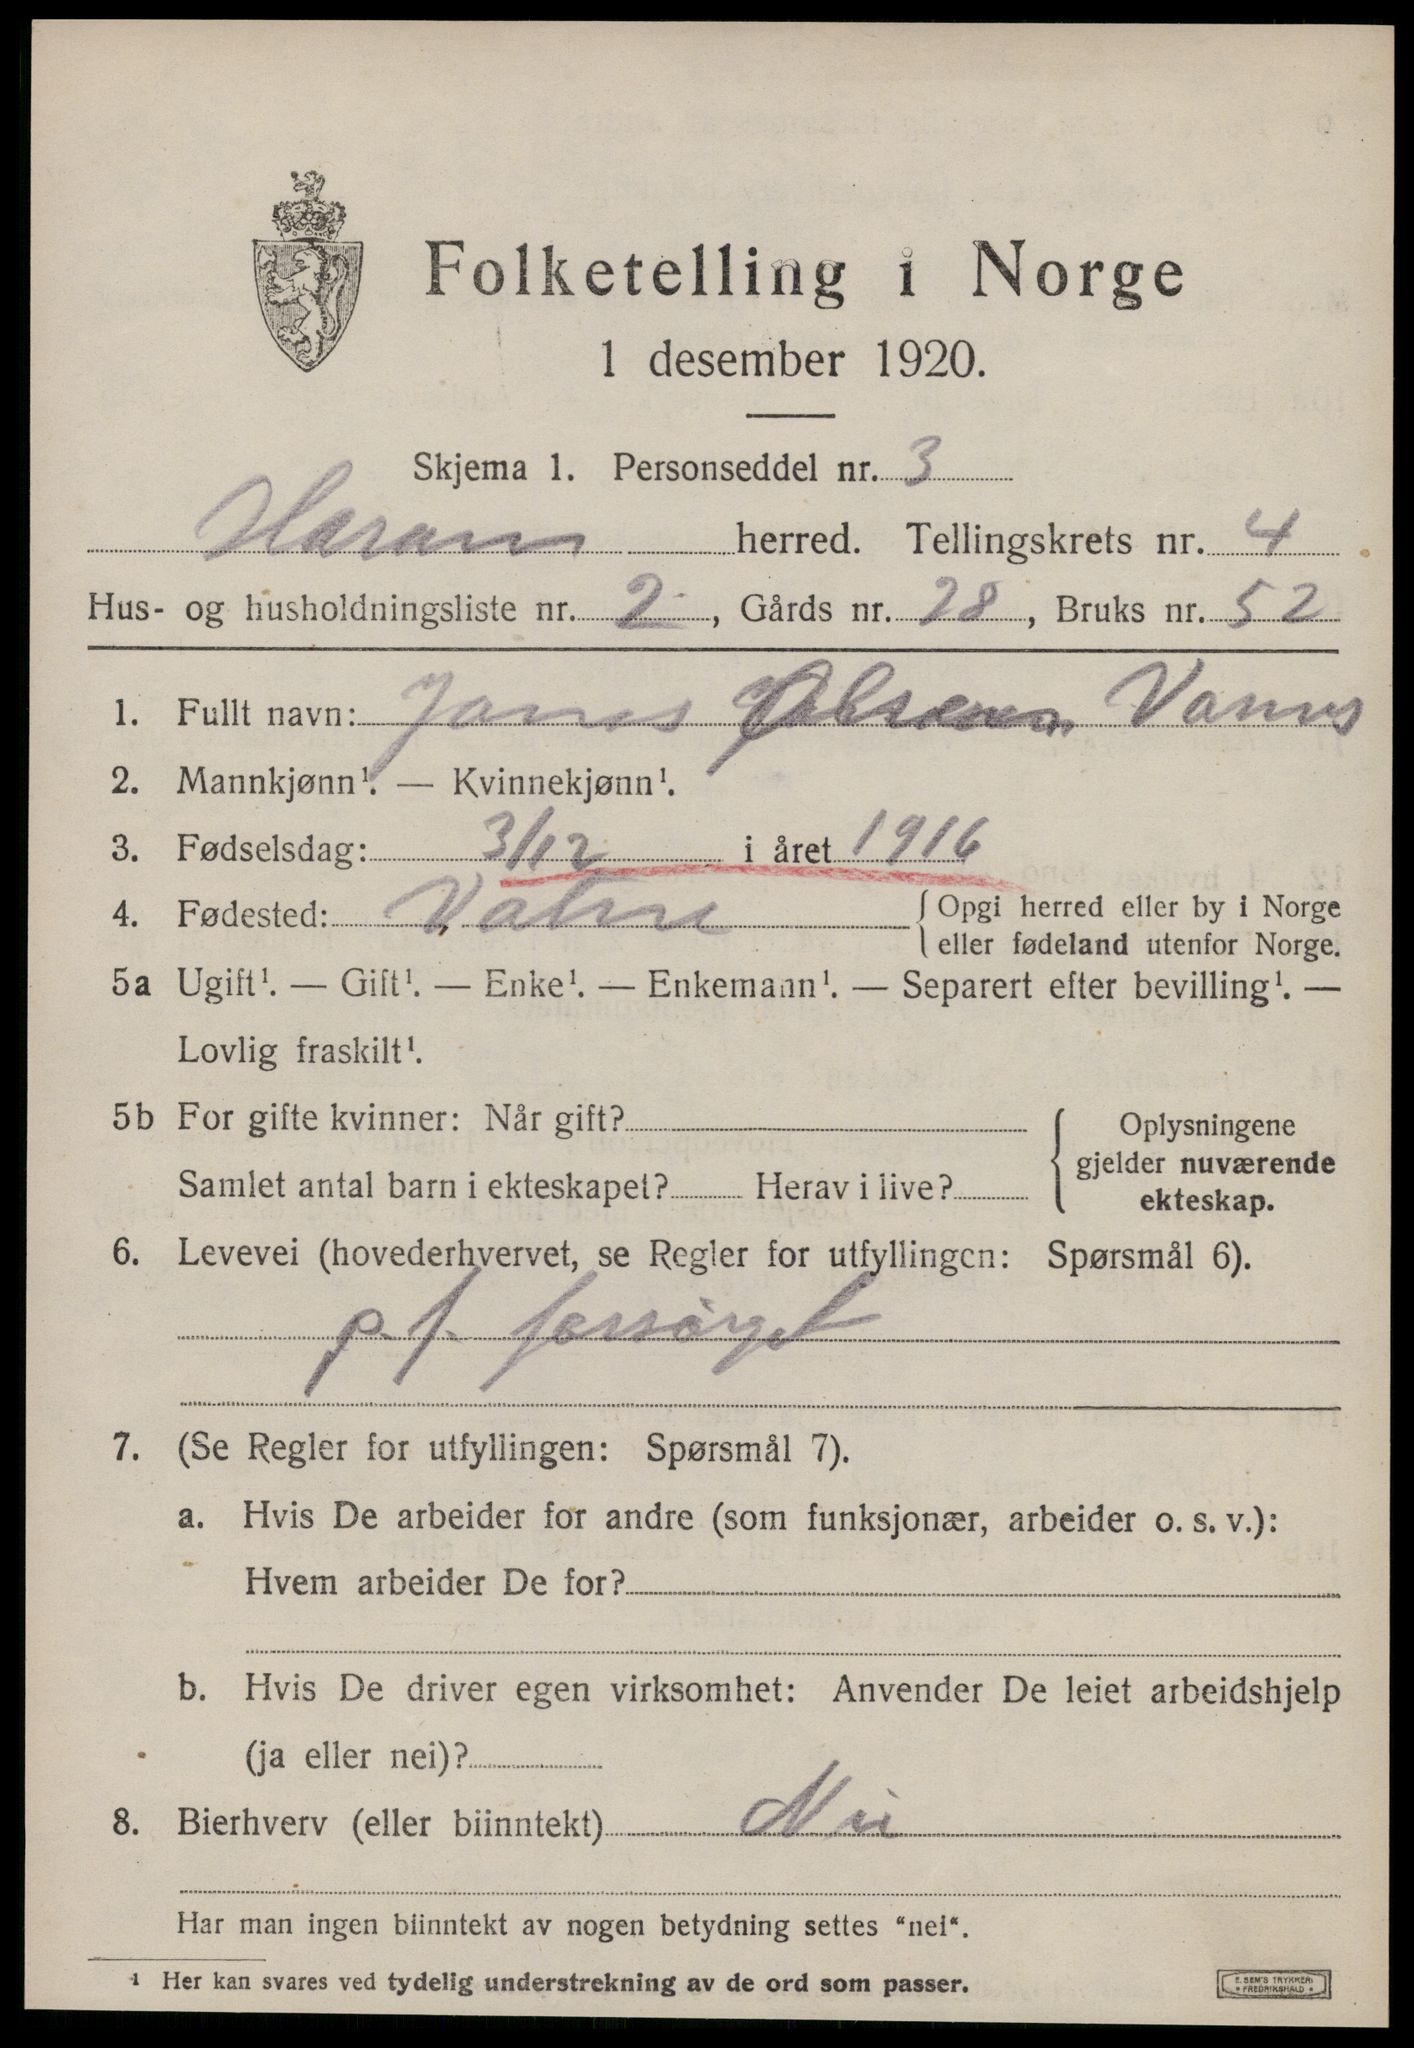 Folketelling i Norge
1 desember 1920.
Skjema 1. Personseddel nr. 3
Haram herred. Tellingskrets nr. 4
Hus- og husholdningsliste nr. 2, Gårds nr. 28, Bruks nr. 52
1. Fullt navn: Vannes
2. Mannkjønn¹. — Kvinnekjønn¹.
3. Fødselsdag: 3/12 i året 1916
4. Fødested: Vatne {Opgi herred eller by i Norge
eller fødeland utenfor Norge.
5a Ugift¹. — Gift¹. — Enke¹. — Enkemann¹. — Separert efter bevilling¹. —
Lovlig fraskilt¹.
5b For gifte kvinner: Når gift? { Oplysningene
gjelder nuværende
Samlet antal barn i ekteskapet? Herav i live? ekteskap.
6. Levevei (hovederhvervet, se Regler for utfyllingen: Spørsmål 6).
p. f. forsørget
7. (Se Regler for utfyllingen: Spørsmål 7).
a. Hvis De arbeider for andre (som funksjonær, arbeider o. s. v.):
Hvem arbeider De for?
b. Hvis De driver egen virksomhet: Anvender De leiet arbeidshjelp
(ja eller nei)?
8. Bierhverv (eller biinntekt) Nei
Har man ingen biinntekt av nogen betydning settes "nei".
¹ Her kan svares ved tydelig understrekning av de ord som passer.
E. SEM'S TRYKKERI
* FREDRIKSHALD *